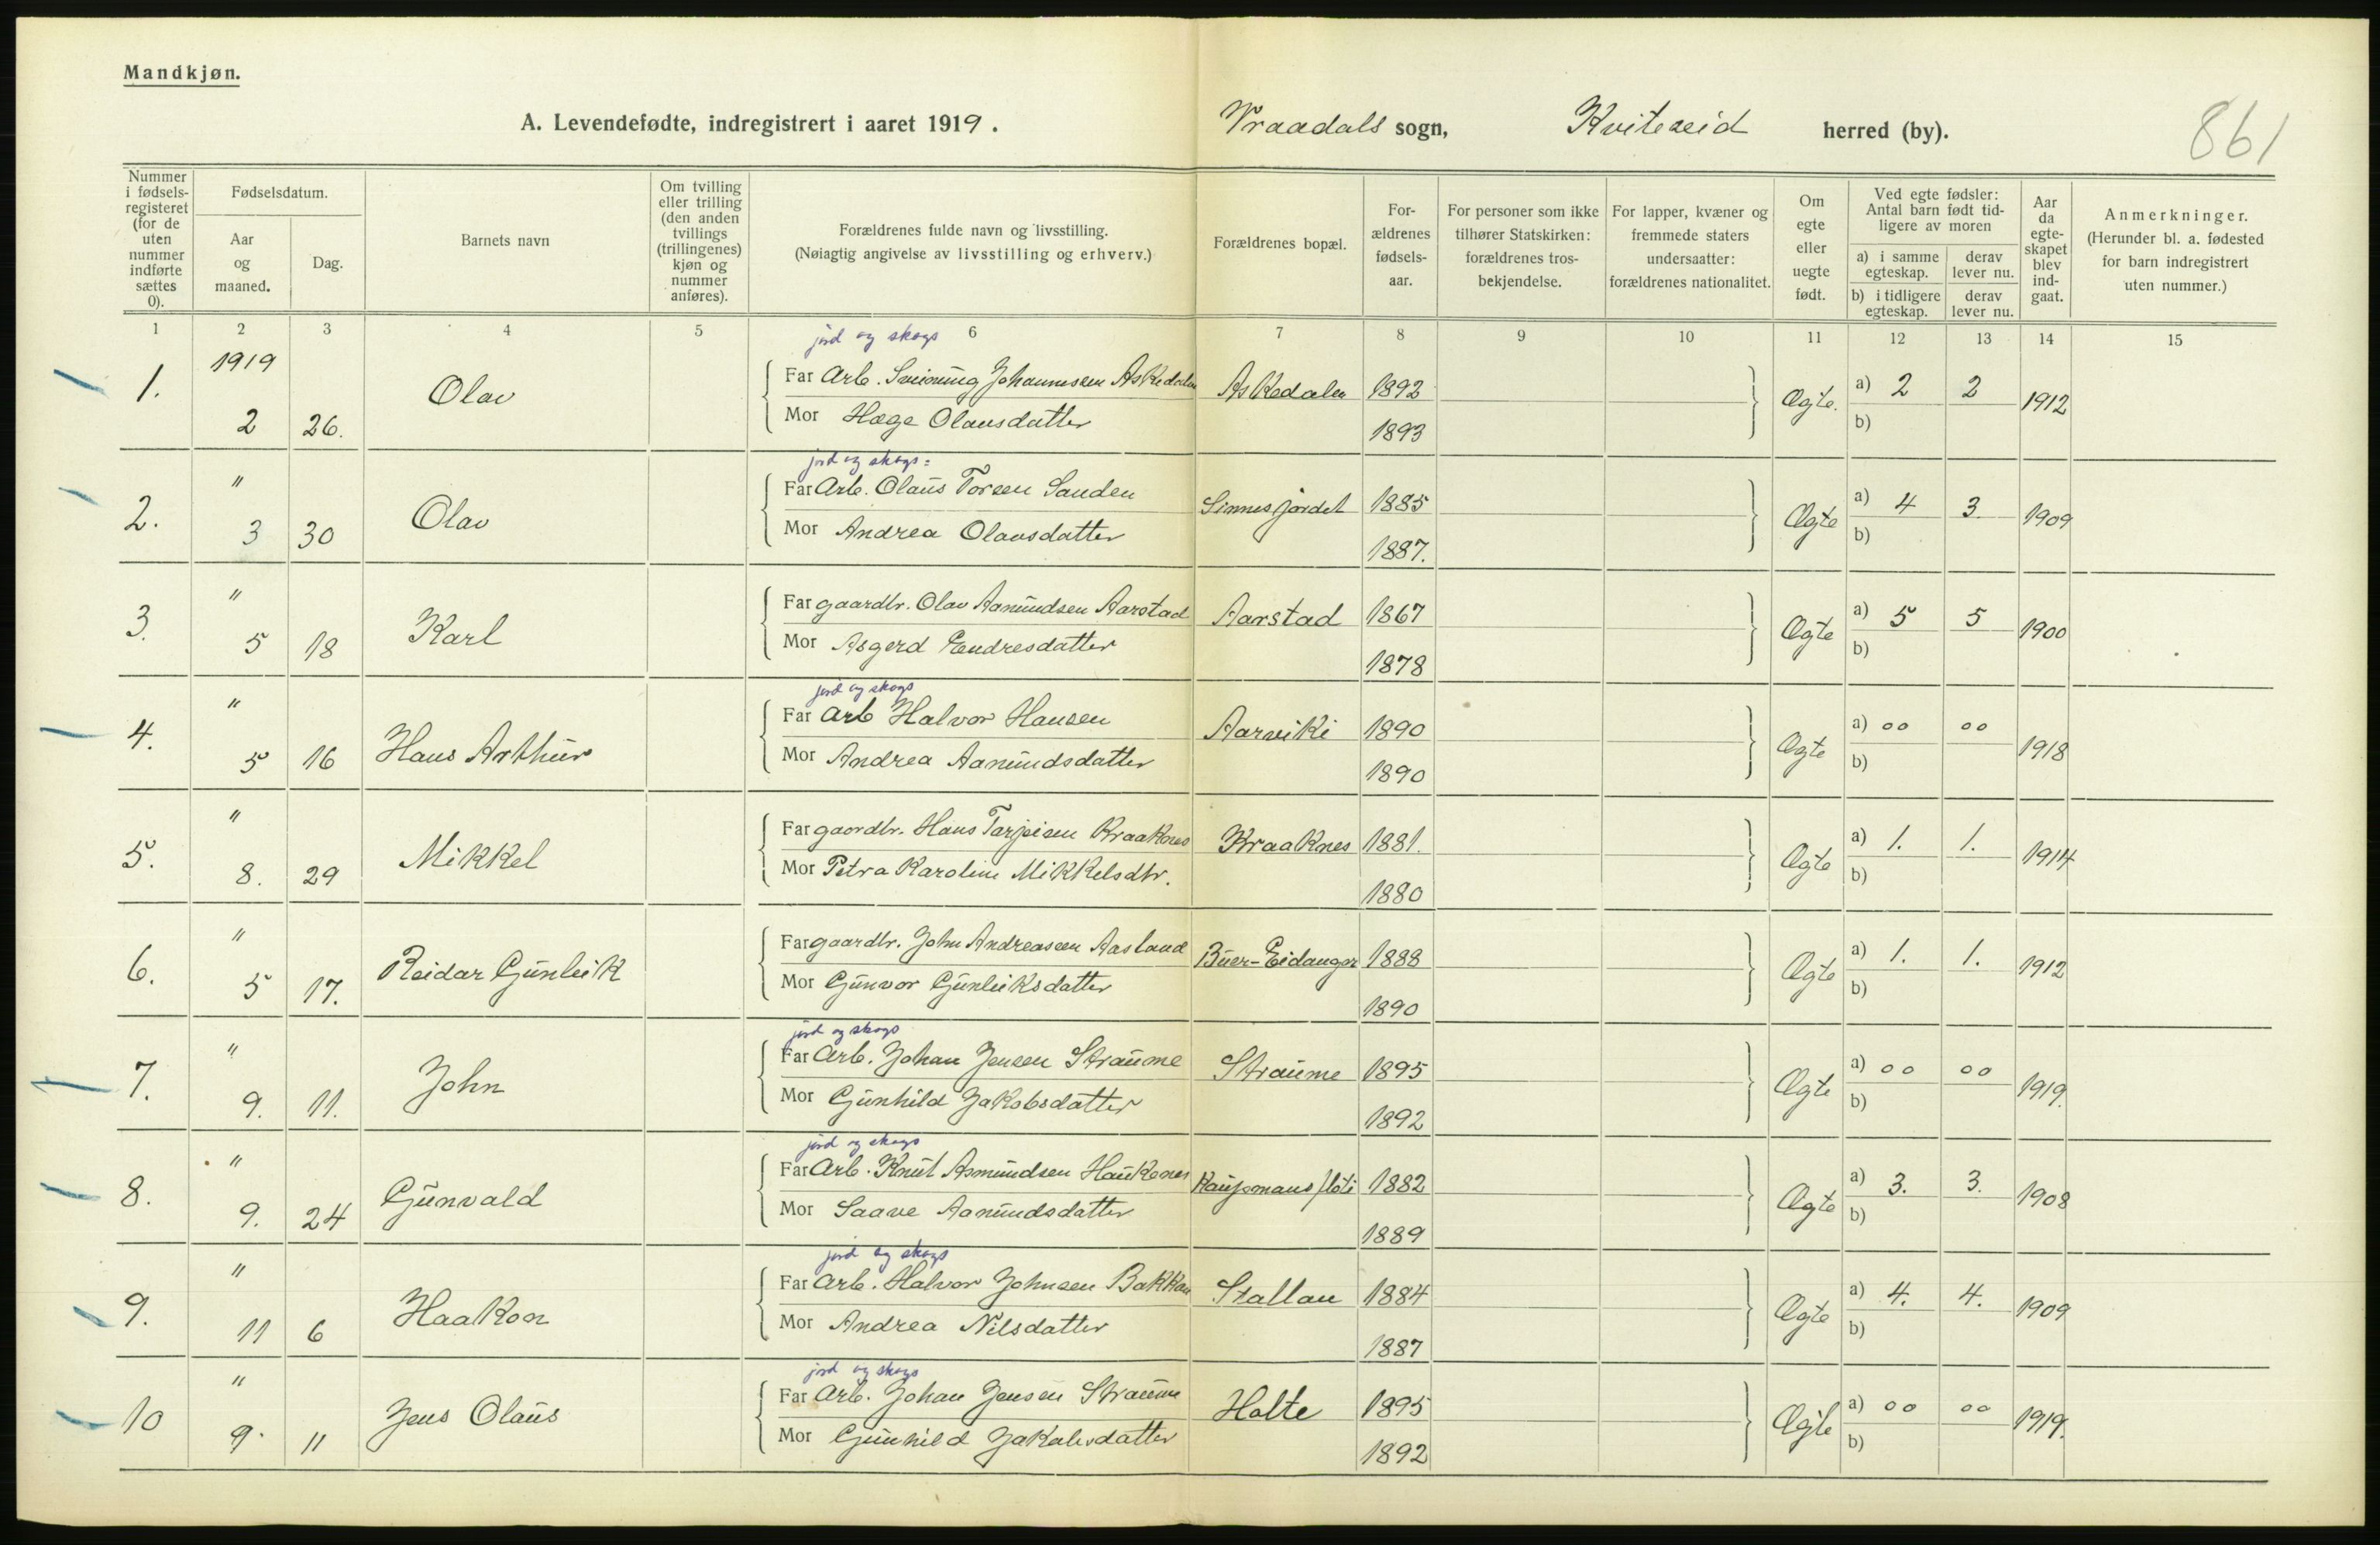 Mandkjøn.
A. Levendefødte, indregistrert i aaret 1919. Vraadals sogn, Kviteseid herred (by). 861
Nummer i fødsels-registeret (for de uten nummer indførte sættes 0).
Fødselsdatum.
Aar og maaned.
Dag.
Barnets navn
Om tvilling eller trilling (den anden tvillings (trillingenes) kjøn og nummer anføres).
Forældrenes fulde navn og livsstilling.
(Nøiagtig angivelse av livsstilling og erhverv.)
Forældrenes bopæl.
For-ældrenes fødsels-aar.
For personer som ikke tilhører Statskirken: forældrenes tros-bekjendelse.
For lapper, kvæner og fremmede staters undersaatter: forældrenes nationalitet.
Om egte eller uegte født.
Ved egte fødsler: Antal barn født tid-ligere av moren
a) i samme egteskap. derav lever nu.
b) i tidligere egteskap. derav lever nu.
Aar da egte-skapet blev ind-gaat.
Anmerkninger.
(Herunder bl. a. fødested for barn indregistrert uten nummer.)
1 2 3 4 5 6 7 8 9 10 11 12 13 14 15
jord og skogs
1. 1919 2 26. Olav Far Arb. Johannessen Askedalen Askedalen 1892 Ægte. a) 2 2 1912
Mor Hæge Olavsdatter 1893 b)
jord og skogs=
2. " 3 30 Olav Far Arb. Olaus Torsen Sanden Sinnesjordet 1885 Ægte a) 4 3 1909
Mor Andrea Olavsdatter 1887. b)
3. " 5 18 Karl Far gaardbr. Olav Aamundsen Aarstad Aarstad 1867 Ægte a) 5 5 1900
Mor Asgerd Endresdatter 1878 b)
jord og skogs
4. " 5 16 Hans Arthur Far Arb Halvor Hansen Aarviki 1890 Ægte a) oo oo 1918
Mor Andrea Aamundsdatter 1890 b)
5. " 8. 29 Mikkel Far gaardbr. Hans Tarjeisen Kraaknes Kraaknes 1881. Ægte a) 1. 1. 1914
Mor Petra Karoline Mikkelsdtr. 1880 b)
6. " 5 17. Reidar Gunleik Far gaardbr. John Andreassen Aasland Buer-Eidanger 1888 Ægte a) 1. 1. 1912
Mor Gunvor Gunleiksdatter 1890 b)
jord og skogs
7. " 9. 11. John Far Arb. Johan Jensen Straume Straume 1895 Ægte a) oo oo 1919.
Mor Gunhild Jakobsdatter 1892 b)
jord og skogs
8. " 9. 24 Gunvald Far Arb. Knut Asmundsen Haukenes Kaupmansfloti 1882 Ægte a) 3. 3. 1908
Mor Saave Aamundsdatter 1889 b)
jord og skogs
9. " 11 6 Haakon Far Arb. Halvor Johnsen Bakkan Stallan 1884 Ægte a) 4. 4. 1909
Mor Andrea Nilsdatter 1887 b)
jord og skogs
10 " 9. 11 Jens Olaus Far Arb. Johan Jensen Straume Holte 1895 Ægte a) oo oo 1919.
Mor Gunhild Jakobsdatter 1892 b)